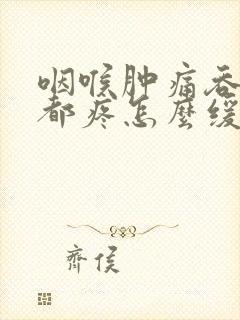 咽喉肿痛吞
都疼怎麼缓
齊侯